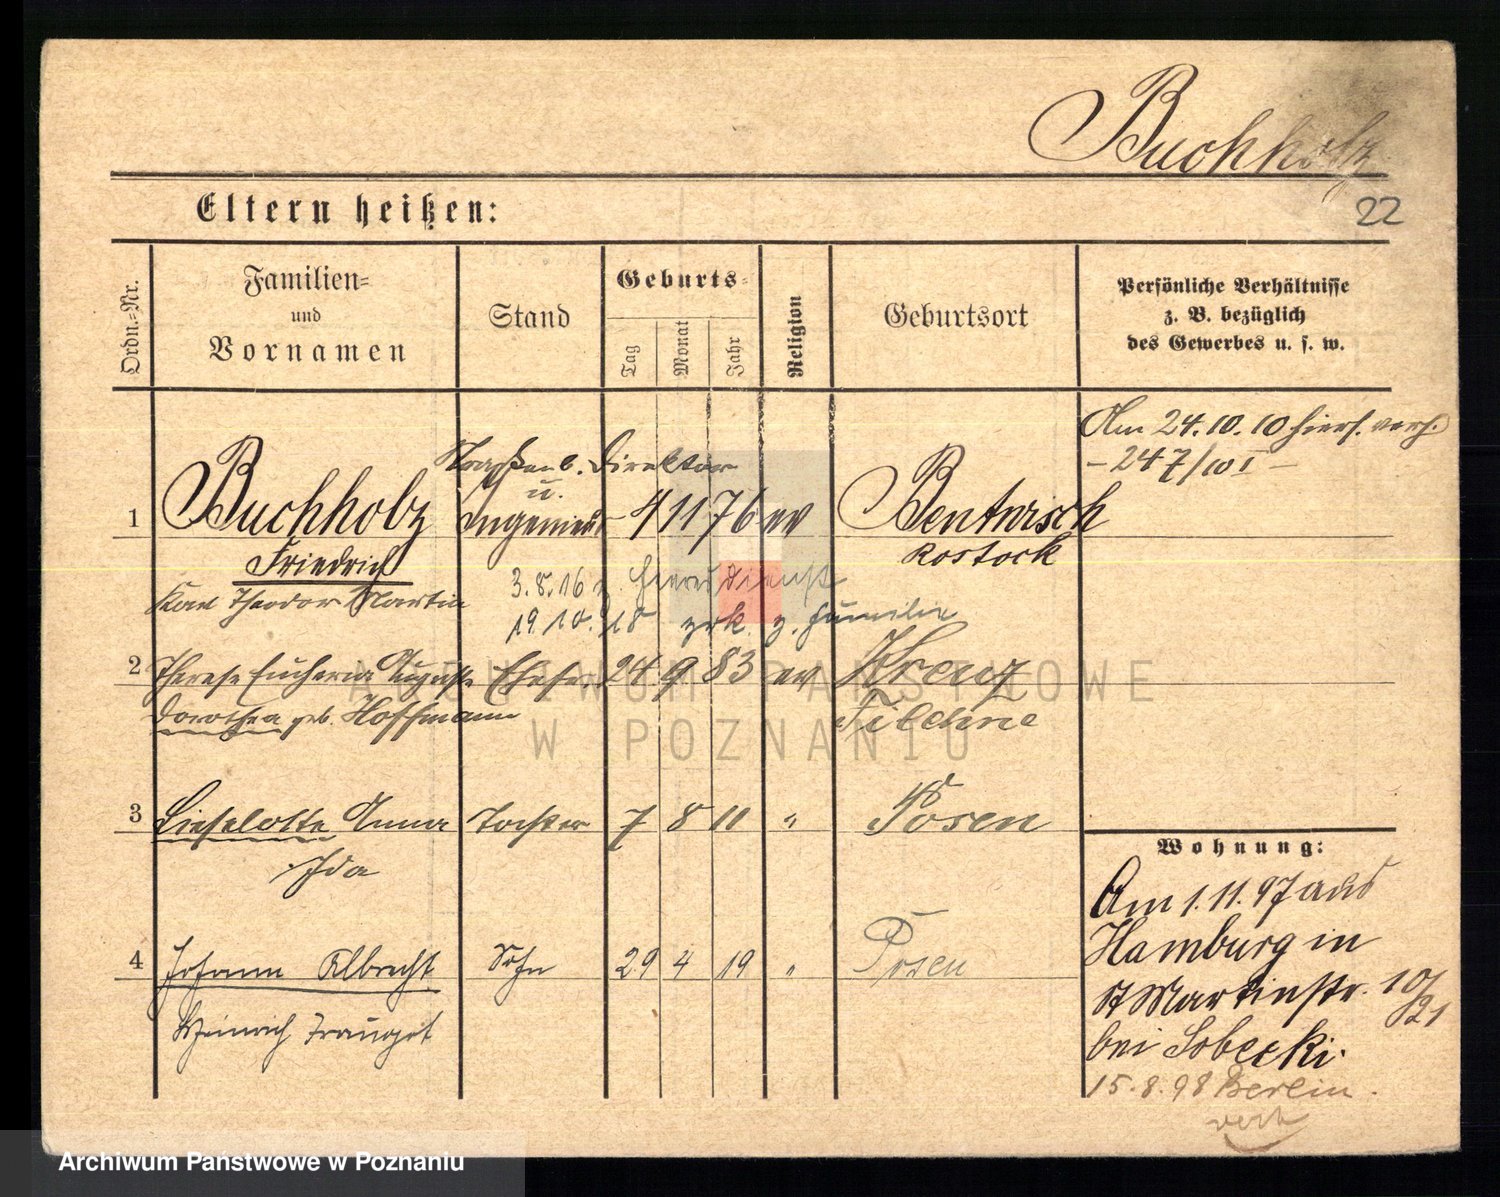 Buchholz
22
Eltern heißen:
Ordn.-Nr.
Familien- und Vornamen
Stand
Geburts-
Tag
Monat
Jahr
Religion
Geburtsort
Persönliche Verhältnisse z. B. bezüglich des Gewerbes u. s. w.
Am 24.10.10 hiers. verh.
- 247/10 I -
Straßenb. Direktor
u.
1 Buchholz Ingenieur 4 11 76 ev Bentwisch
Friedrich Rostock
Karl Theodor Martin
3.8.16 z. Heeresdienst
19.10.18 zrk. z. Familie
2 Therese Eucharia Auguste Ehefr. 24 9 83 ev Kreuz
Dorothea geb. Hoffmann Filehne
3 Lieselotte Anna Tochter 7 8 11 " Posen
Ida
4 Johann Albrecht Sohn 29 4 19 " Posen
Heinrich Traugot
Wohnung:
Am 1.11.97 aus
Hamburg in
St Martinstr. 10/21
bei Sobecki.
15.8.98 Berlin.
verh
ARCHIWUM PAŃSTWOWE
W POZNANIU
Archiwum Państwowe w Poznaniu